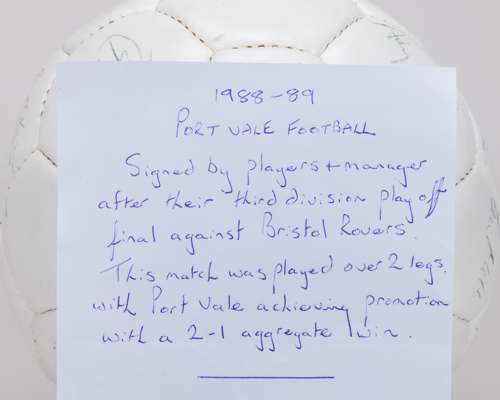 1988-89
PORT VALE FOOTBALL
Signed by players + manager
after their third division play off
final against Bristol Rovers.
This match was played over 2 legs,
with Port Vale achieving promotion
with a 2-1 aggregate win.